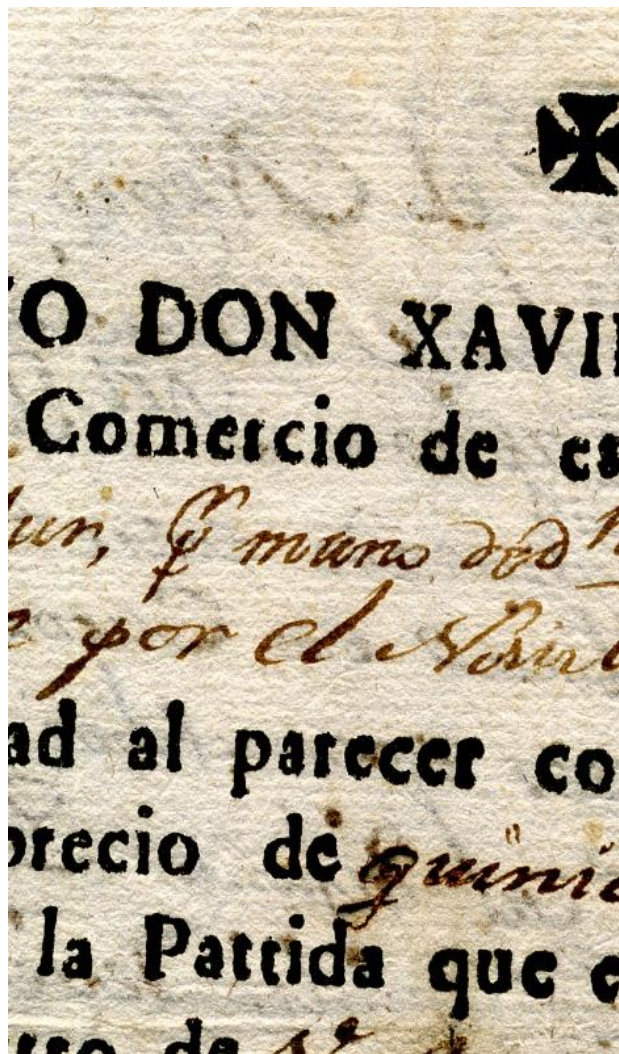 YO DON XAVI
Comercio de es
mano
por el
ad al parecer co
precio de quinie
la Partida que e
de